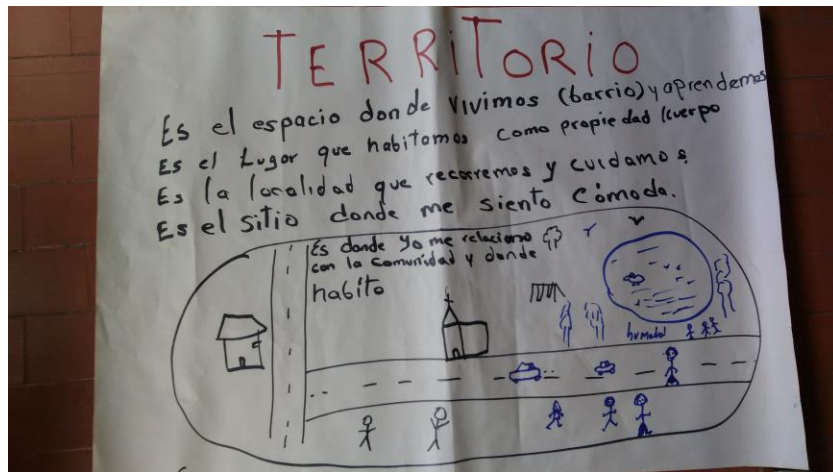 TERRiTORiO
Es el espacio donde vivimos (barrio) y aprendemos
Es el Lugar que habitamos como propiedad /cuerpo
Es la localidad que recorremos y cuidamos
Es el sitio donde me siento cómoda.
Es donde yo me relaciono
con la comunidad y donde
habito
humedal